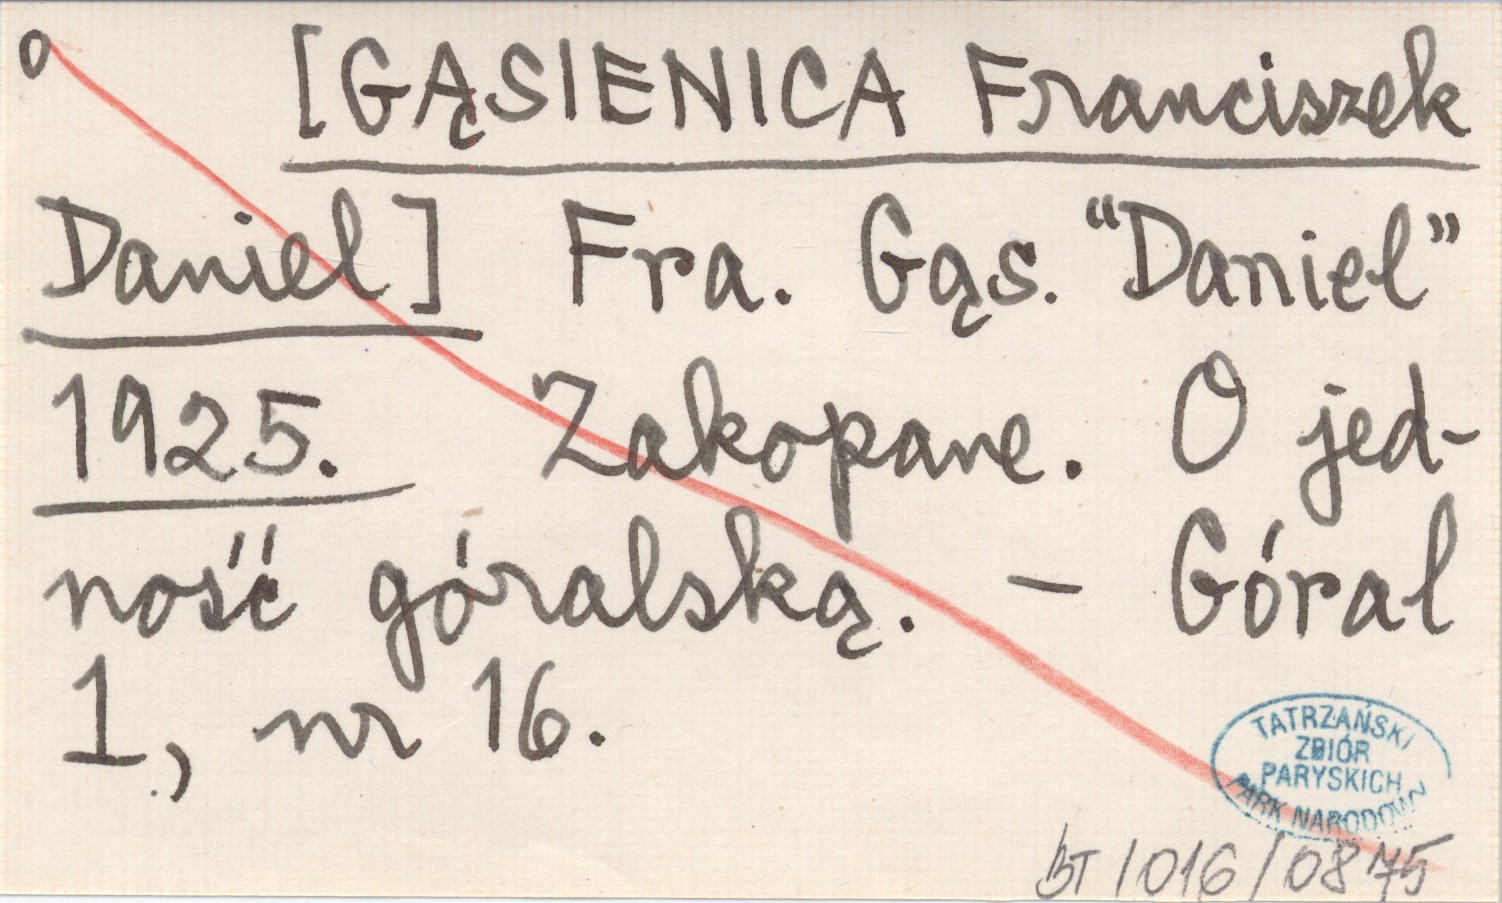 o [GĄSIENICA Franciszek
Daniel] Fra. Gąs. "Daniel"
1925. Zakopane. O jed-
ność góralską. – Góral
1, nr 16.
TATRZAŃSKI
ZBIÓR
PARYSKICH
PARK NARODOWY
BT/016/0875